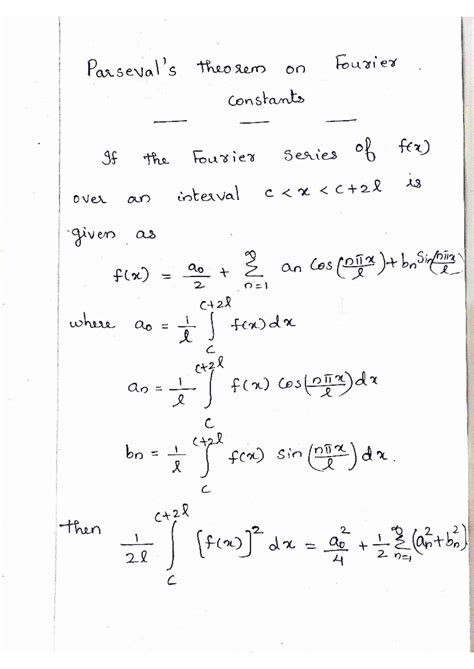 Parseval's theorem on Fourier
constants
If the Fourier series of f(x)
over an interval c < x < c+2l is
given as
f(x) = a₀/2 + ∑_{n=1}^{∞} an cos(nπx/l) + bn sin(nπx/l)
where a₀ = 1/l ∫_c^{c+2l} f(x) dx
an = 1/l ∫_c^{c+2l} f(x) cos(nπx/l) dx
bn = 1/l ∫_c^{c+2l} f(x) sin(nπx/l) dx.
then 1/2l ∫_c^{c+2l} [f(x)]² dx = a₀²/4 + 1/2 ∑_{n=1}^{∞} (an² + bn²)